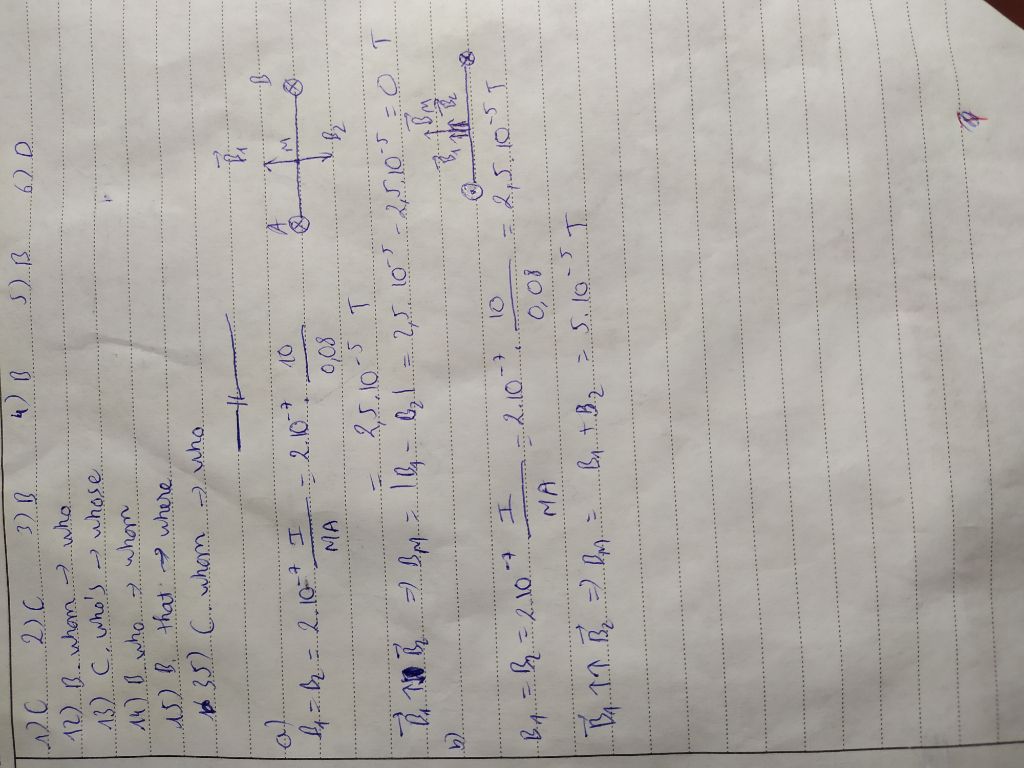 1) C 2) C 3) B 4) B 5) B 6) D
12) B. whom → who
13) C. who's → whose
14) B who → whom
15) B that → where
35) C. whom → who
a)
B₁ = B₂ = 2.10⁻⁷ I/MA = 2.10⁻⁷. 10/0,08
= 2,5.10⁻⁵ T
A M B
B₁
B₂
B₁ ↑ B₂ ⇒ B_M = |B₁ - B₂| = 2,5.10⁻⁵ - 2,5.10⁻⁵ = 0 T
b)
B₁ B_M
B₂
B₁ = B₂ = 2.10⁻⁷ I/MA = 2.10⁻⁷. 10/0,08 = 2,5.10⁻⁵ T
B₁ ↑↑ B₂ ⇒ B_M = B₁ + B₂ = 5.10⁻⁵ T